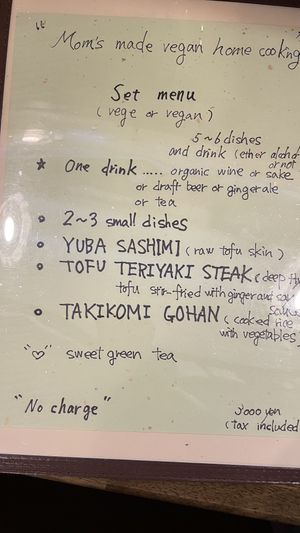 Mom's made vegan home cooking
Set menu
(vege or vegan)
5~6 dishes
and drink (ether alchol
or not
★ One drink ..... organic wine or sake
or draft beer or gingerale
or tea
• 2~3 small dishes
• YUBA SASHIMI (raw tofu skin)
• TOFU TERIYAKI STEAK (deep
tofu stir-fried with ginger and soy
sauce
• TAKIKOMI GOHAN (cooked rice
with vegetables)
"♡" sweet green tea
"No charge"
3'000 yen
(tax included